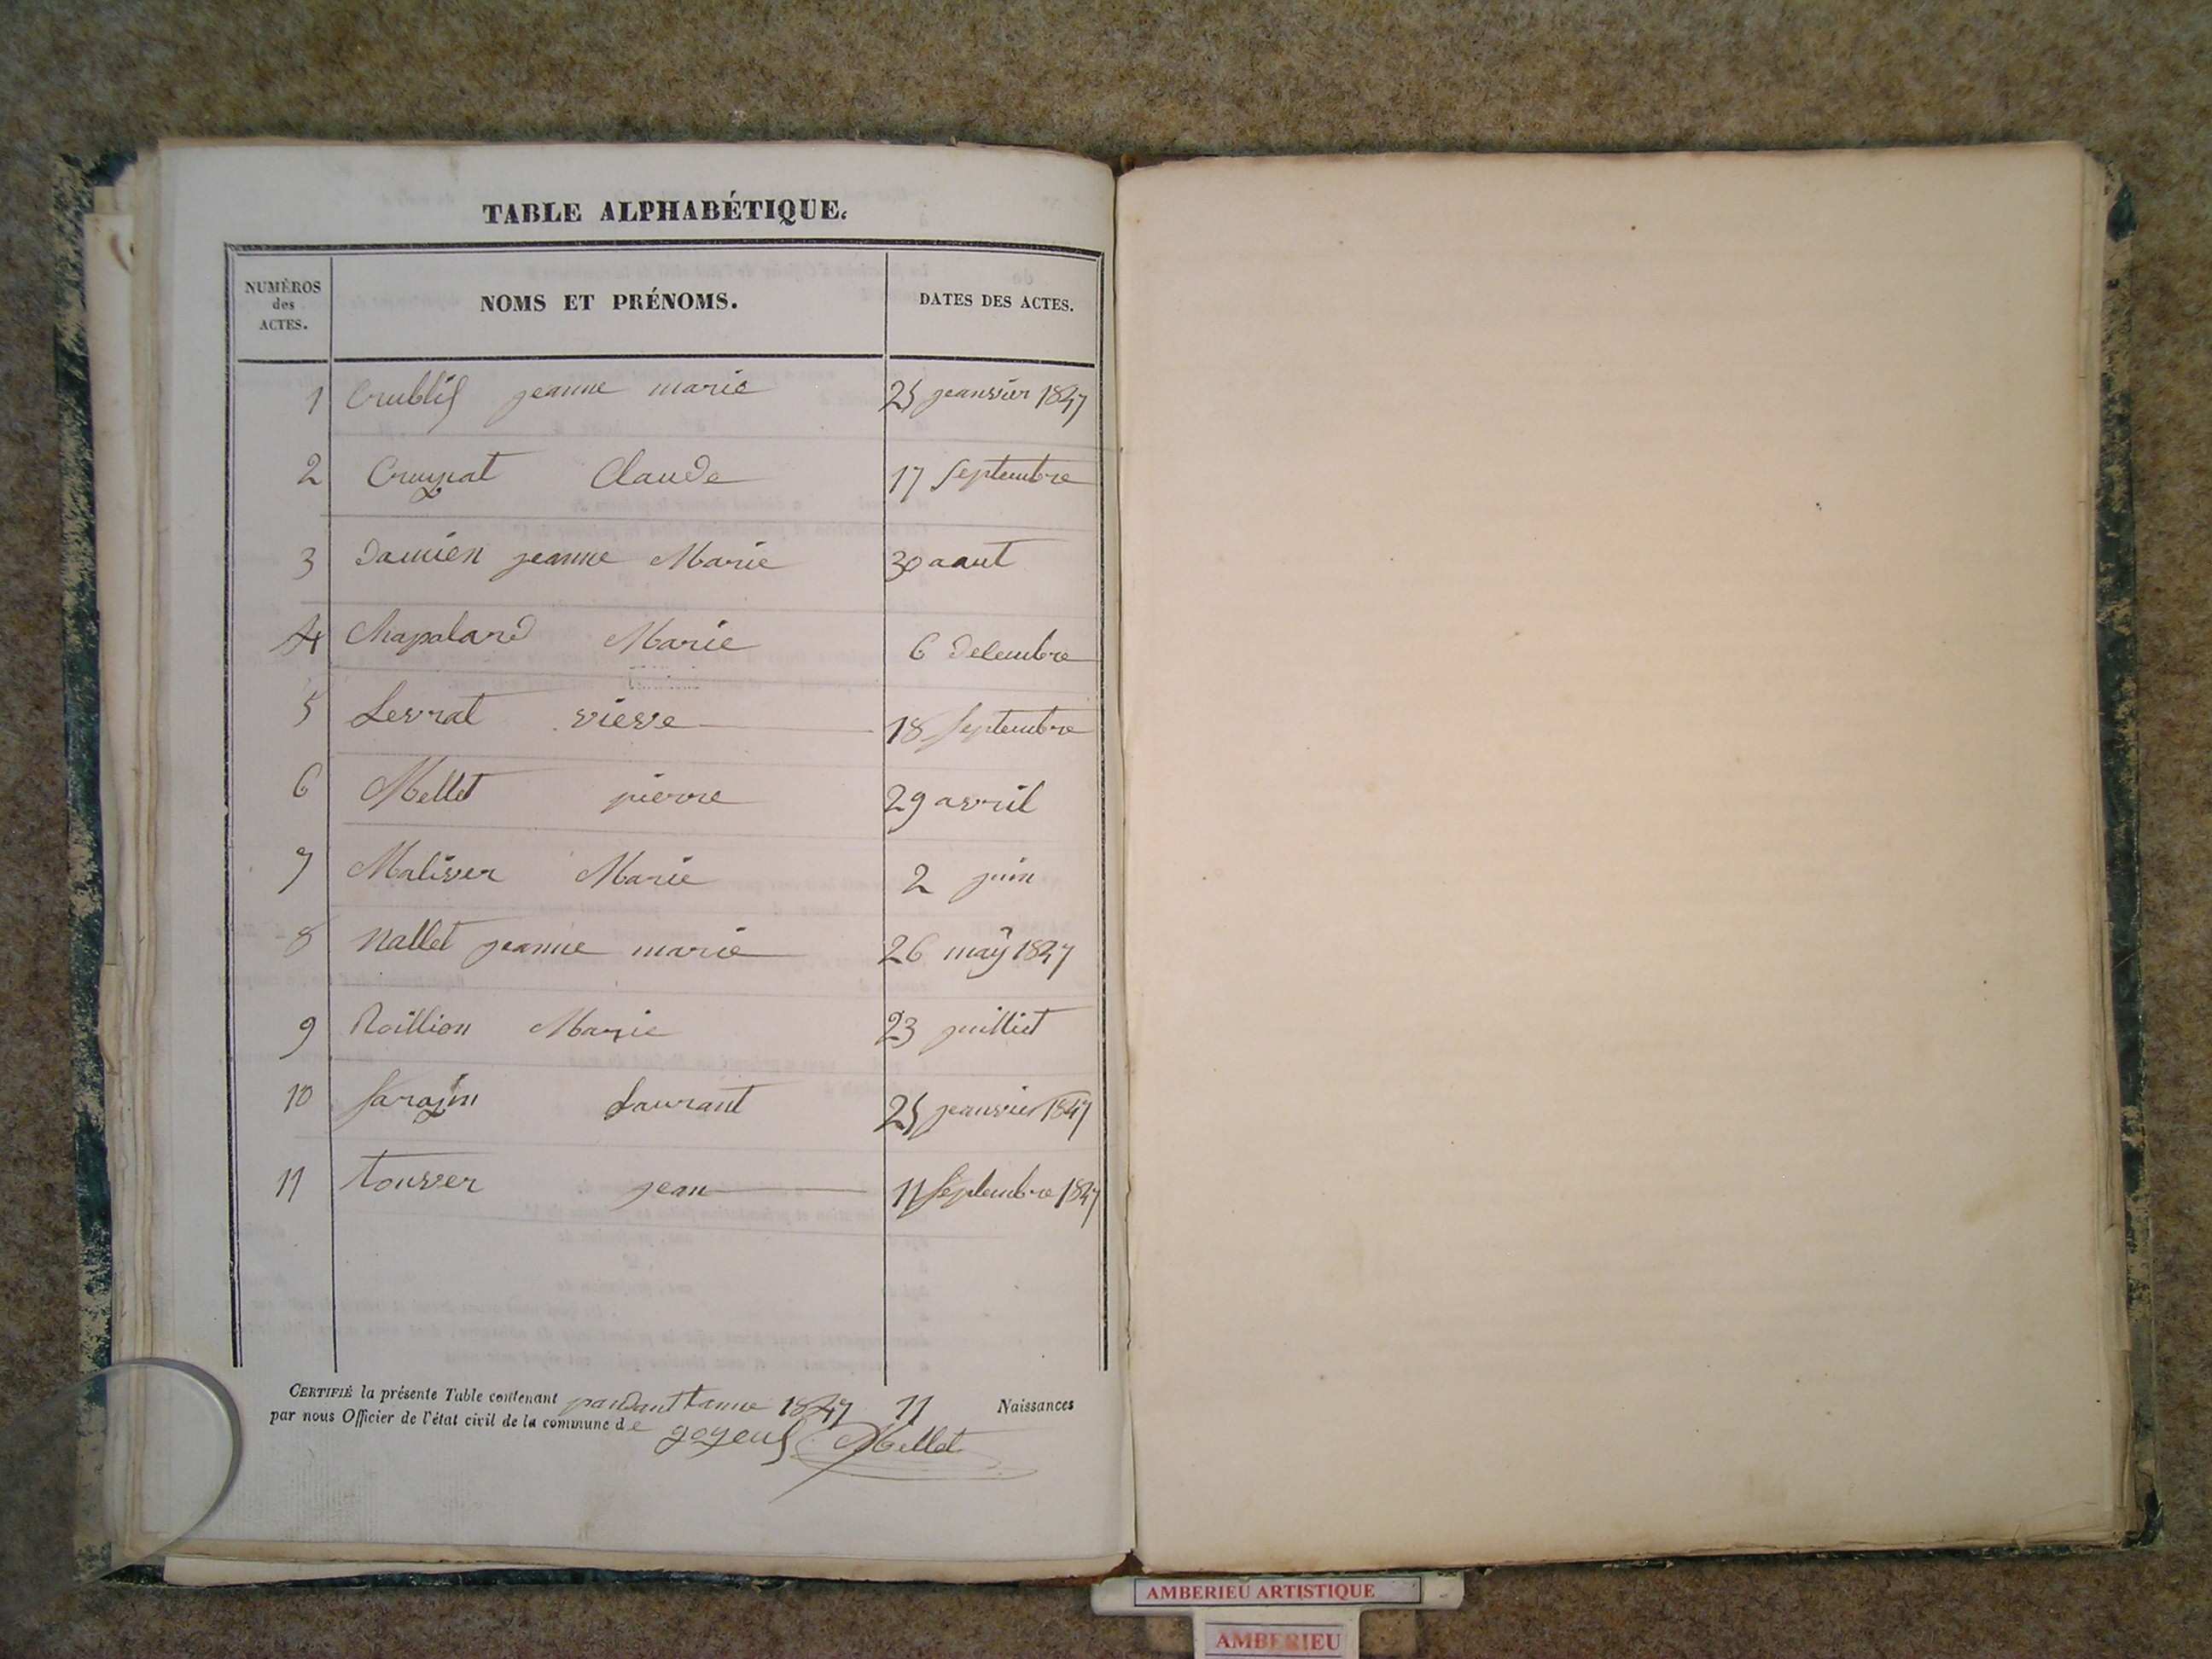 TABLE ALPHABÉTIQUE.
NUMÉROS des ACTES. NOMS ET PRÉNOMS. DATES DES ACTES.
1 Crublif jeanne marie 25 jeanvier 1847
2 Claude 17 Septembre
3 Damien jeanne Marie 30 aaut
4 Chapaland Marie 6 decembre
5 Levrat vieve 18 Septembre
6 Mellet pierre 29 avril
7 Maliver Marie 2 juin
8 Nallet jeanne marie 26 maÿ 1847
9 Roillion Marie 23 juillet
10 Sarazin Laurant 25 jeanvier 1847
11 touver jean 11 Septembre 1847
CERTIFIÉ la présente Table contenant pandant lanne 1847 11 Naissances
par nous Officier de l'état civil de la commune de Mellet
AMBERIEU ARTISTIQUE
AMBERIEU